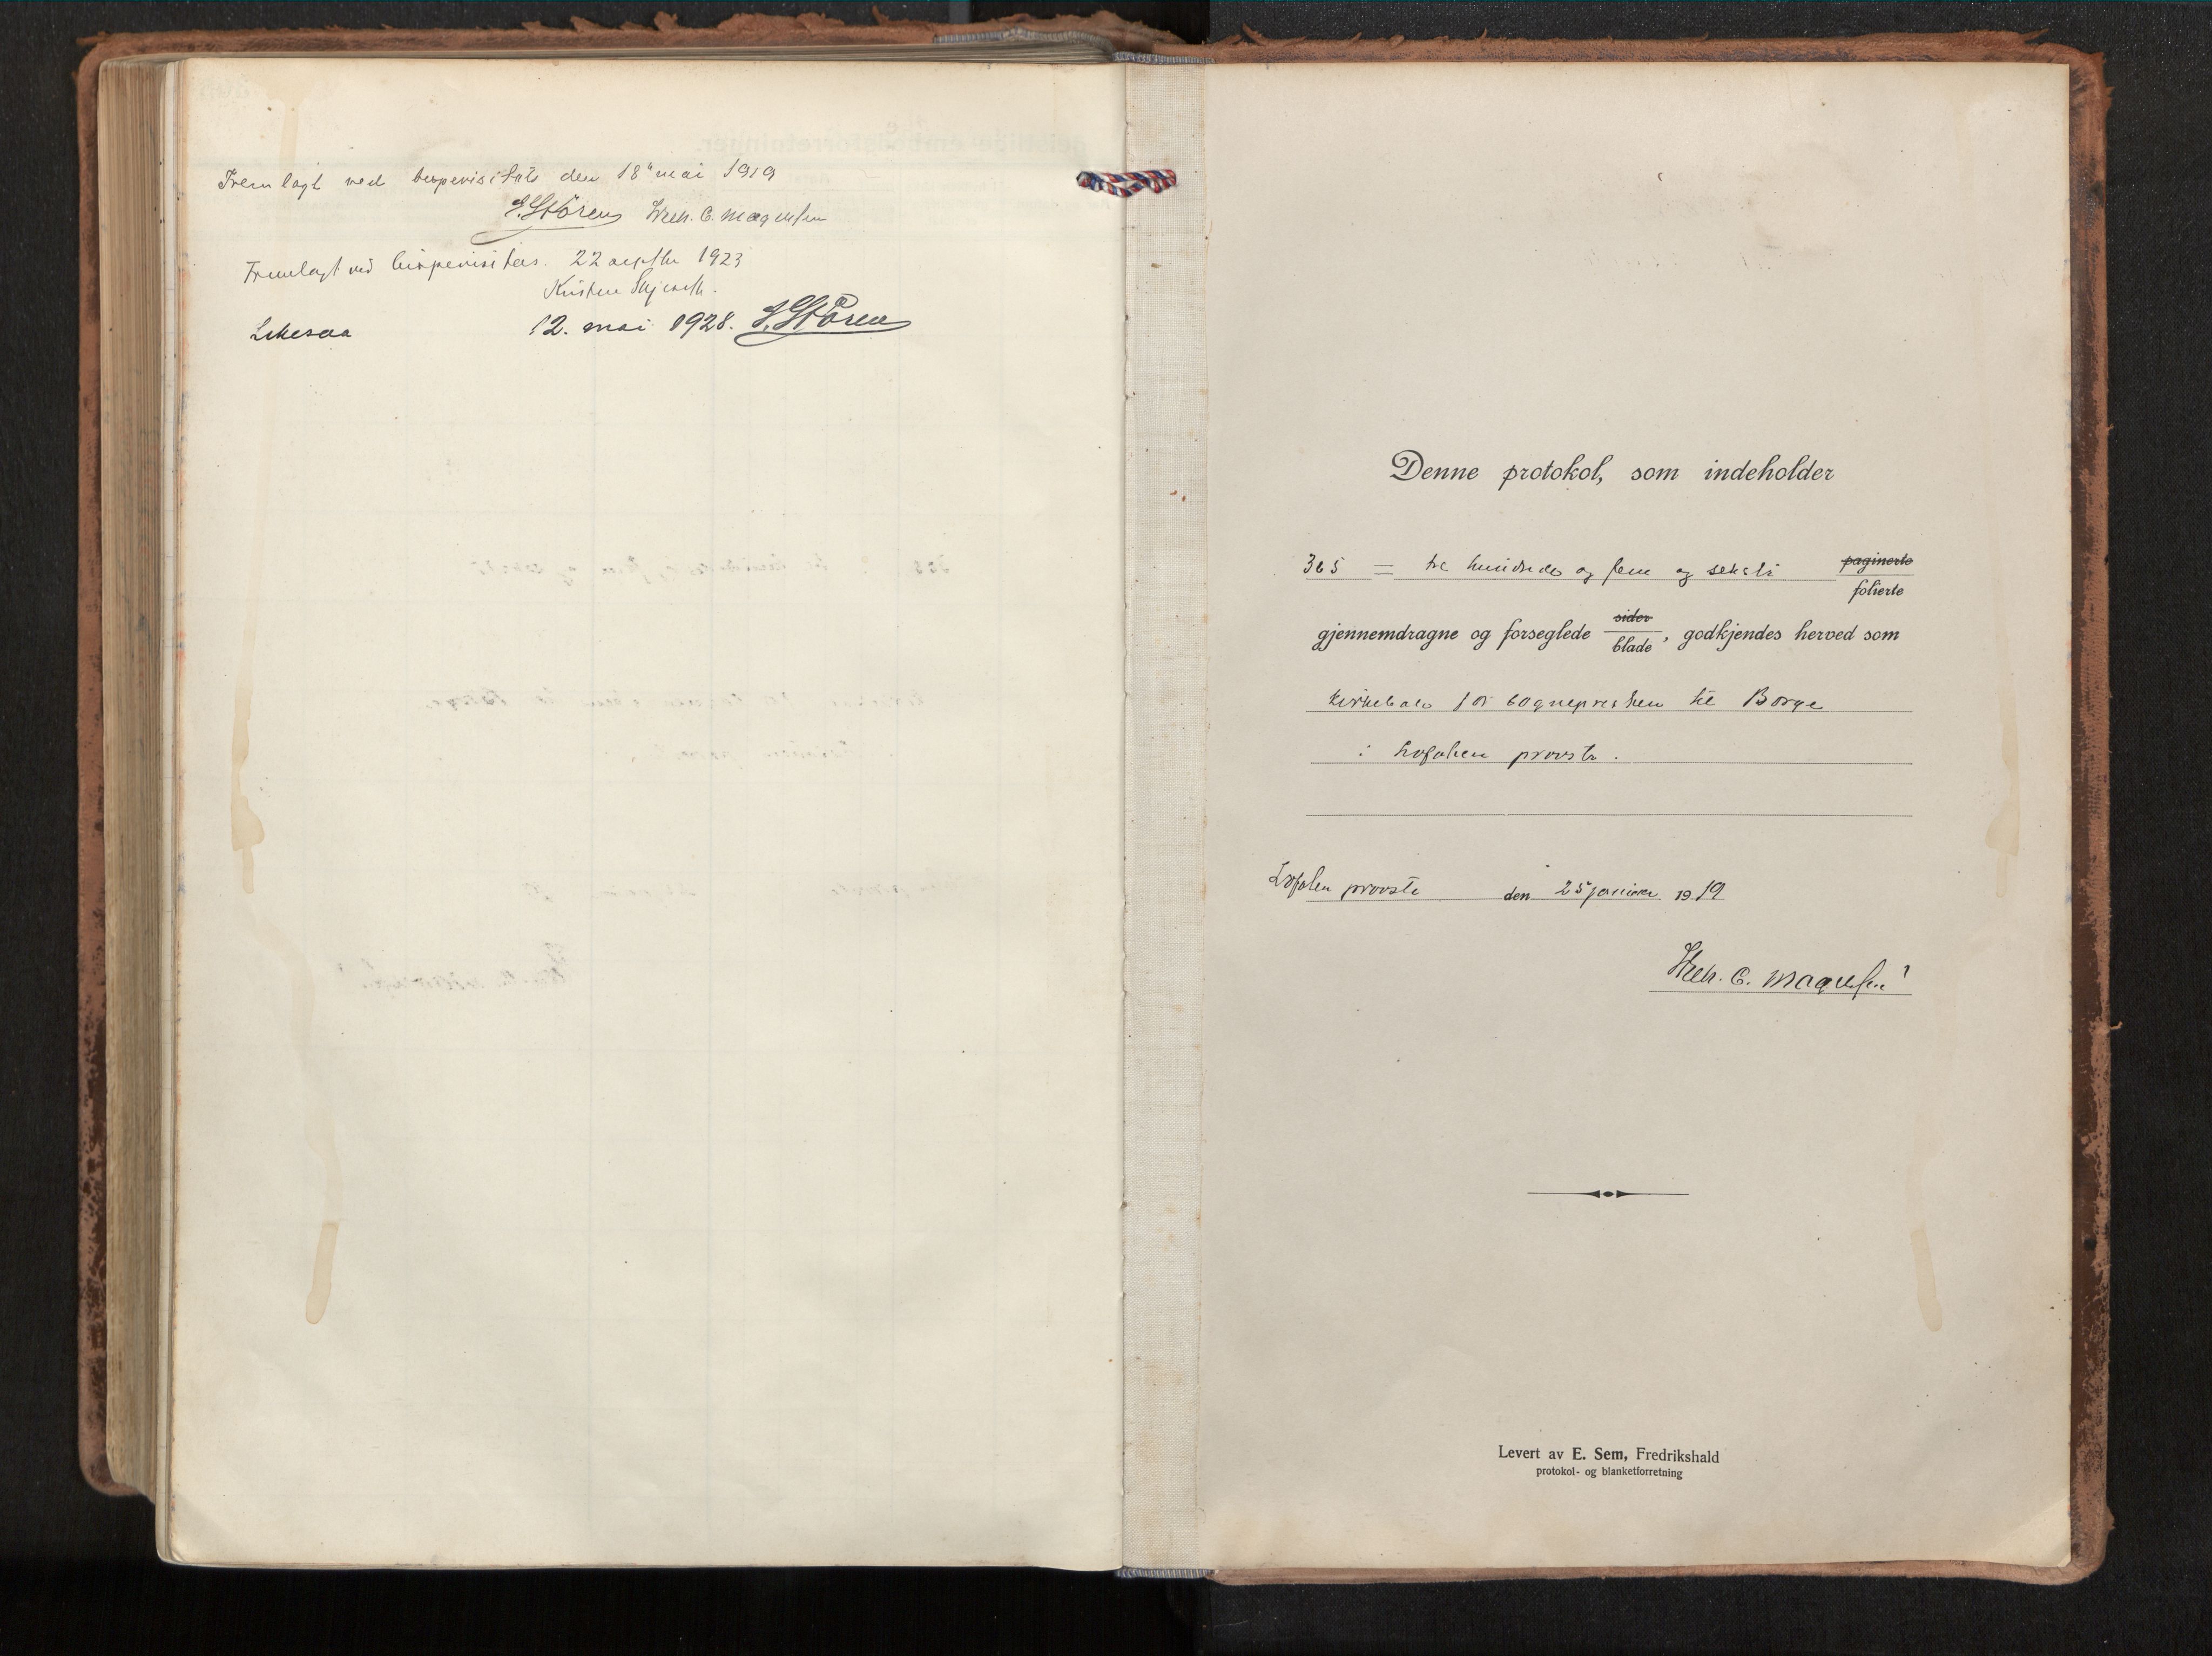 Fremlagt ved bispevisitas den 18de mai 1919
J. Støren C. Magelssen
Fremlagt ved bispevisitas. 22 septbr 1923
Kristen Skjeseth.
Likesaa 12. mai 1928. J. Støren
Denne protokol, som indeholder
365 = tre hundrede og fem og seksti paginerte
folierte
gjennemdragne og forseglede sider
blade, godkjendes herved som
kirkebok for sognepresten til Borge
i Lofoten provsti.
Lofoten provsti den 25 januar 1919
C. Magelssen
Levert av E. Sem, Fredrikshald
protokol- og blanketforretning